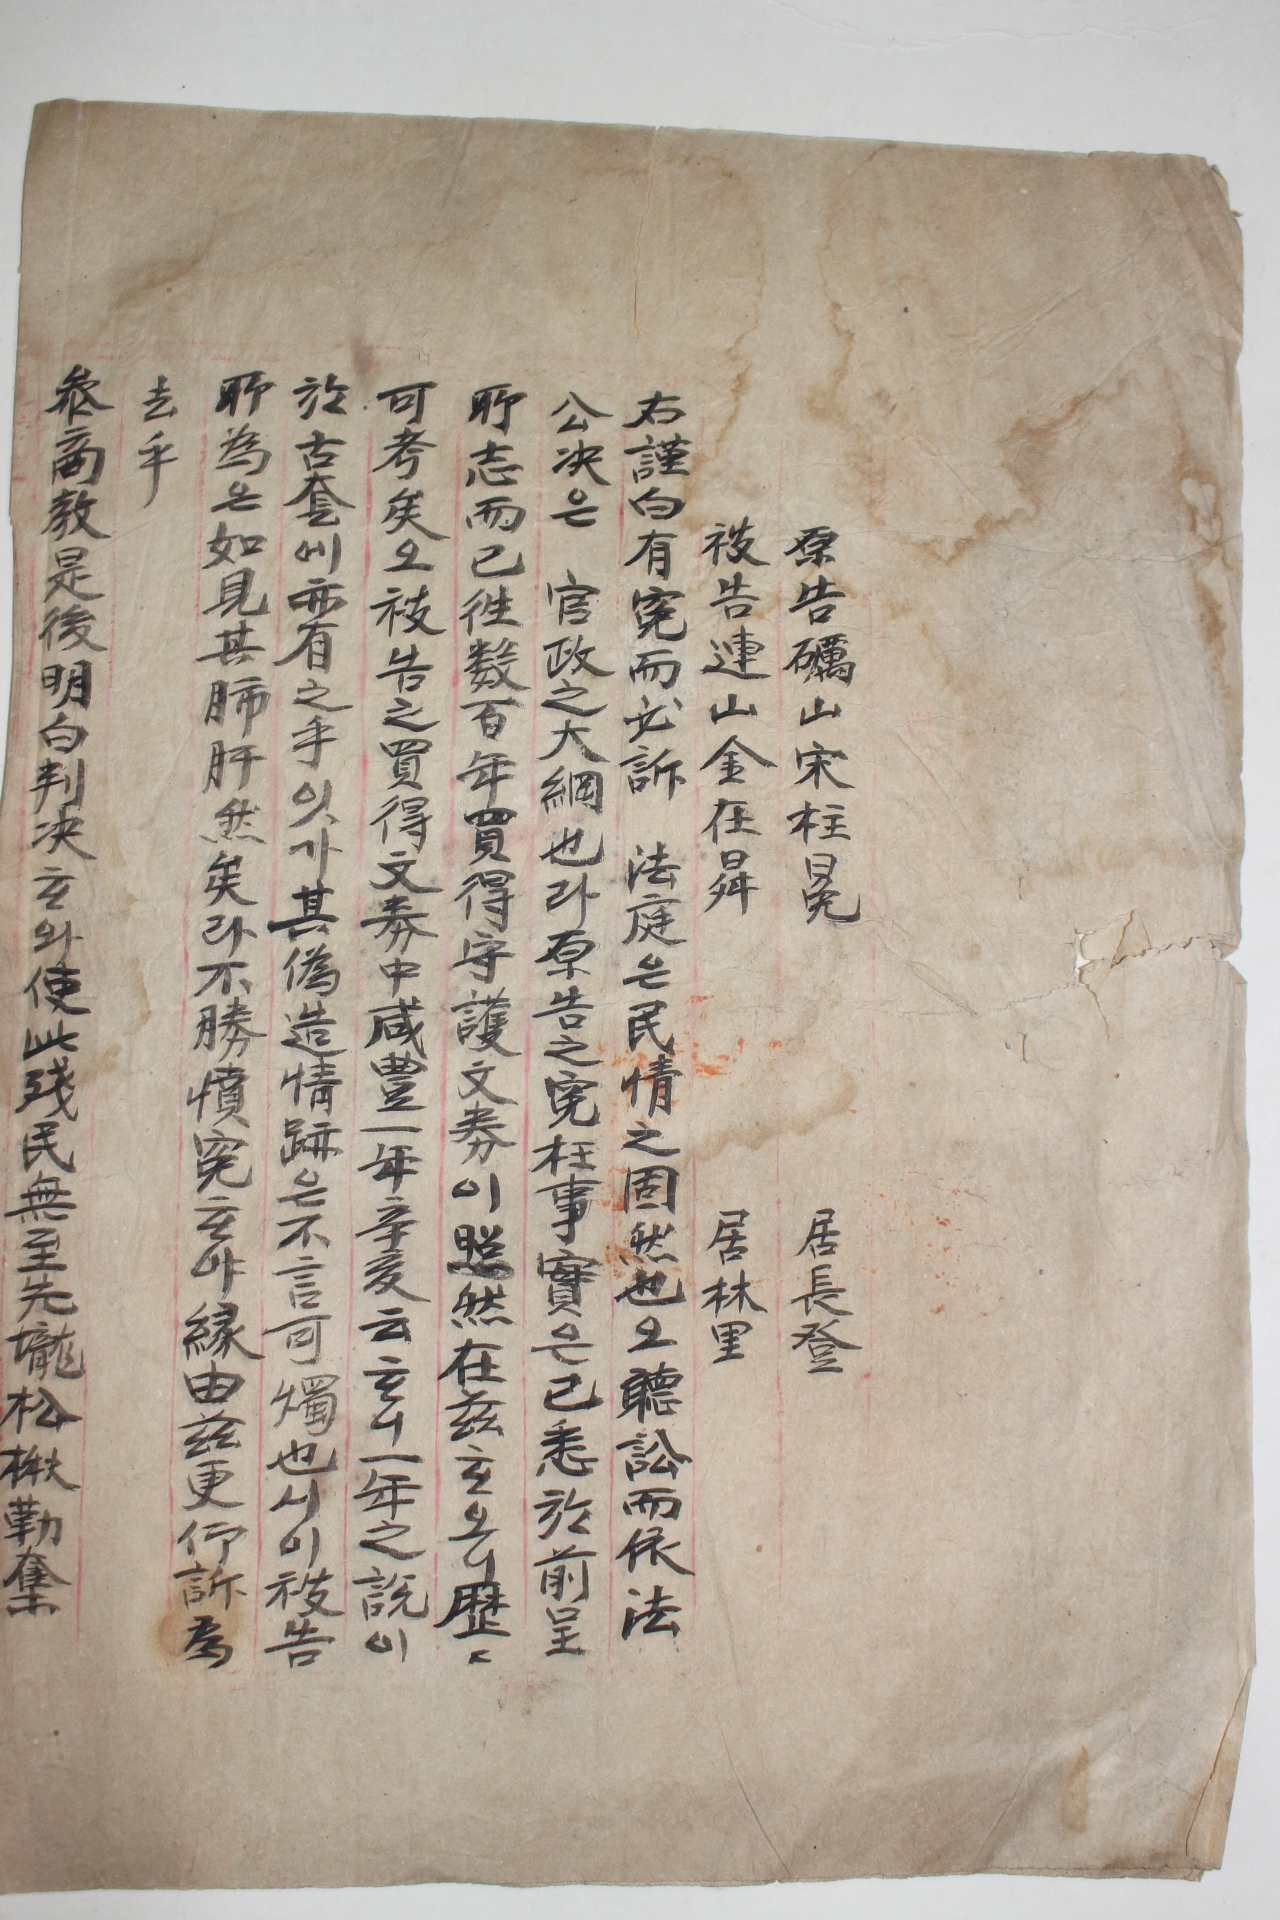 原告礪山宋柱冕 居長登
被告連山金在昇 居林里
右謹白有寃而必訴 法庭은民情之固然也오聽訟而依法
公决은 官政之大綱也라原告之寃枉事實은已悉於前呈
所志而已徃数百年買得守護文券이照然在玆하오니歷〻
可考矣오被告之買得文券中咸豊一年辛亥云하니一年之說이
於古套에亦有之乎잇가其偽造情跡은不言可燭也시이被告
所為은如見其肺肝然矣라不勝憤寃하야緣由玆更仰訴為
去乎
叅商敎是後明白判决하와使此残民無至先壠松楸勒奪